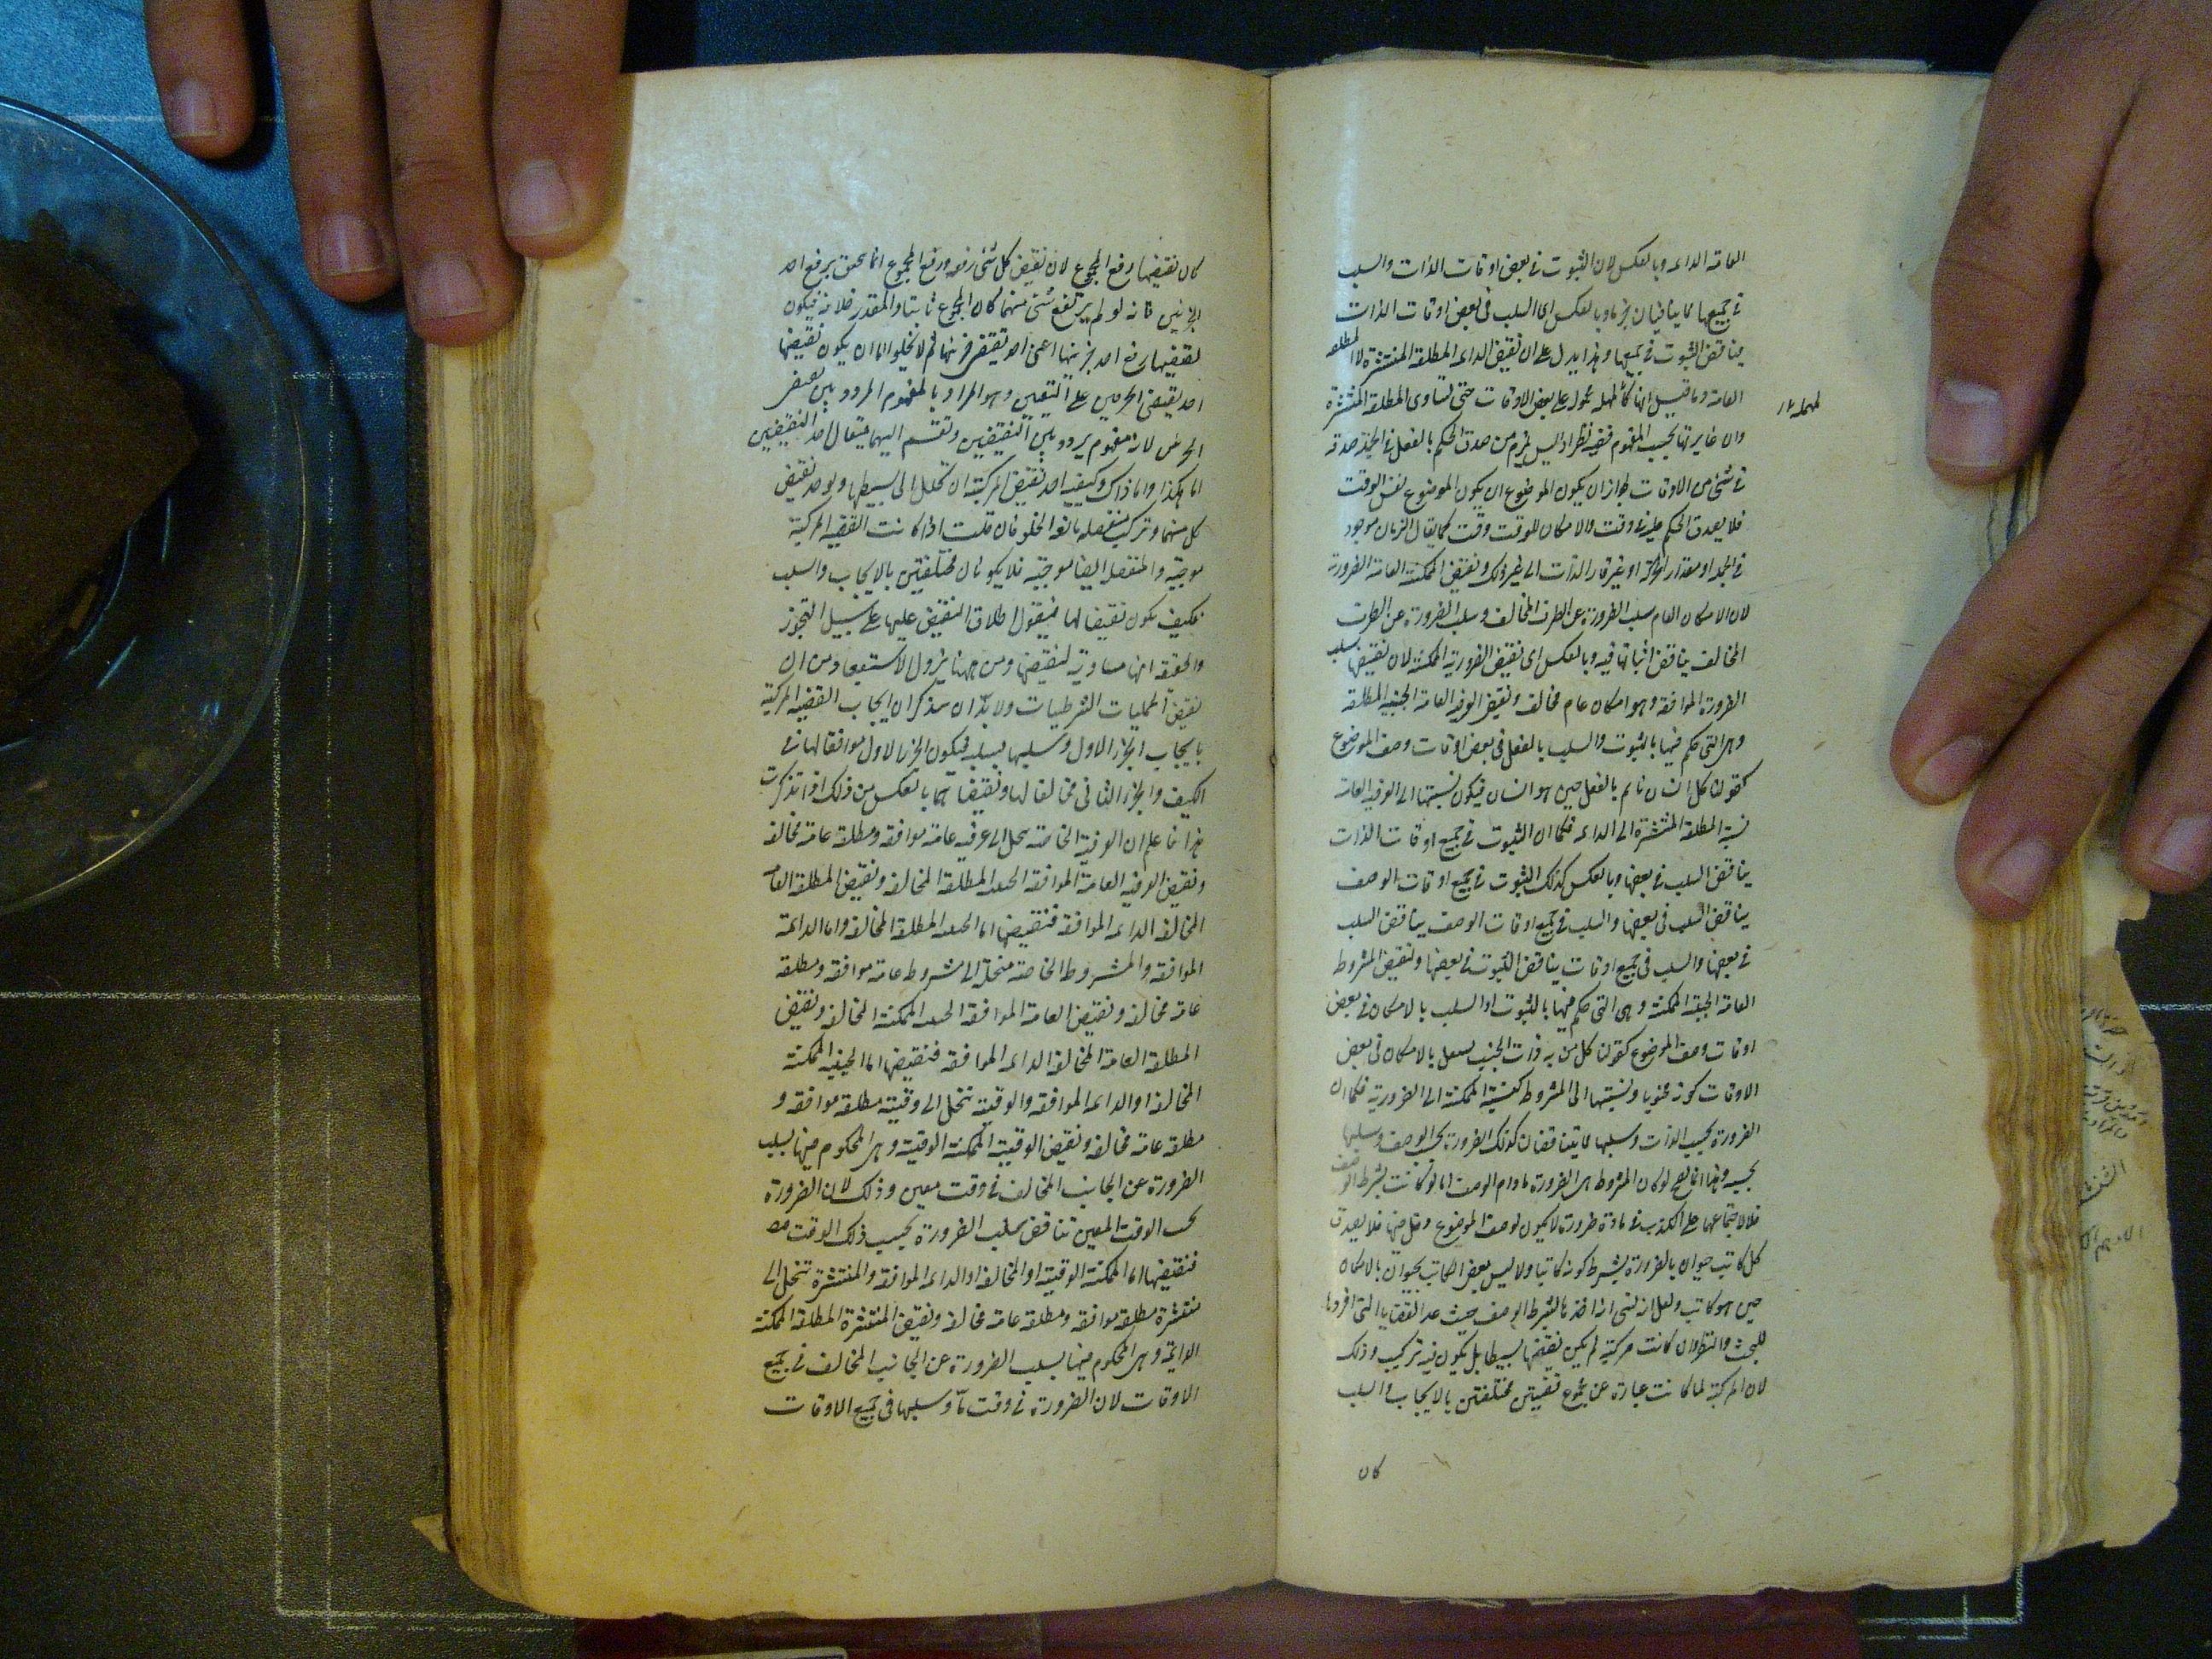 العامة الدائمة وبالعكس لان الثبوت في بعض اوقات الذات والسلب
في جميعها مما يتنافيان جزما وبالعكس اى السلب في بعض اوقات الذات
يناقض الثبوت في جميعها وهذا يدل على ان نقيض الدائمة المطلقة المنتشرة لا المطلقة
العامة وما قيل انها كالمهملة محمول على بعض الاوقات حتى تساوى المطلقة المنتشرة
وان غايرتها بحسب المفهوم ففيه نظر اذ ليس يلزم من صدق الحكم بالفعل في الجملة صدقه
في شئ من الاوقات لجواز ان يكون الموضوع نفس الوقت
فلا يصدق الحكم عليه في وقت والا لكان للوقت وقت كما يقال الزمان موجود
في الجملة او مقدار الحركة او غير قار الذات الى غير ذلك ونقيض الممكنة العامة الضرورية
لان الامكان العام سلب الضرورة عن الطرف المخالف وسلب الضرورة عن الطرف
المخالف يناقض اثباتها فيه وبالعكس اى نقيض الضرورية الممكنة لان نقيضها سلب
الضرورة الموافقة وهو امكان عام مخالف ونقيض العرفية العامة الحينية المطلقة
وهى التى حكم فيها بالثبوت والسلب بالفعل في بعض اوقات وصف الموضوع
كقولنا كل انسان نائم بالفعل حين هو انسان فيكون نسبتها الى العرفية العامة
نسبة المطلقة المنتشرة الى الدائمة فكما ان الثبوت في جميع اوقات الذات
يناقض السلب في بعضها وبالعكس كذلك الثبوت في جميع اوقات الوصف
يناقض السلب في بعضها والسلب في جميع اوقات الوصف يناقض السلب
في بعضها والسلب في جميع اوقات يناقض الثبوت في بعضها ونقيض المشروطة
العامة الحينية الممكنة وهى التى حكم فيها بالثبوت او السلب بالامكان في بعض
اوقات وصف الموضوع كقولنا كل من به ذات الجنب يسعل بالامكان في بعض
الاوقات كونه مجنوبا ونسبتها الى المشروطة كنسبة الممكنة الى الضرورية فكما ان
الضرورة بحسب الذات وسلبها مما يتناقضان كذلك الضرورة بحسب الوصف وسلبها
بحسبه وهذا انما يصح لو كان المشروطة هى الضرورة مادام الوصف اما لو كانت بشرط الوصف
فلا لاجتماعهما على الكذب في مادة ضرورة لا يكون لوصف الموضوع دخل فيها فلا يصدق
كل كاتب حيوان بالضرورة بشرط كونه كاتبا ولا ليس بعض الكاتب بحيوان بالامكان
حين هو كاتب ولعل انه نسى اذ اخذها بشرط الوصف حيث عد القضايا التى افردها
للبحث والنظر وان كانت مركبة لم يكن نقيضها بسيطا بل يكون فيه تركيب وذلك
لان المركبة لما كانت عبارة عن مجموع قضيتين مختلفتين بالايجاب والسلب
كان
كان نقيضها رفع المجموع لان نقيض كل شئ رفعه ورفع المجموع انما يتحقق برفع احد
الجزئين فانه لو لم يرتفع شئ منهما كان المجموع ثابتا والمقدر خلافه فيكون
نقيضها رفع احد جزئيها اعنى احد نقيضى جزئيها ثم لا يخلو اما ان يكون نقيضها
احد نقيضى الجزئين على التعيين وهو المراد بالمفهوم المردد بين نقيضى
الجزئين لانه مفهوم يردد بين النقيضين وتقسم اليهما فيقال احد النقيضين
اما هكذا واما ذاك وكيفية اخذ نقيض المركبة ان تحلل الى بسيطها ويوخذ نقيض
كل منهما وتركب منفصلة مانعة الخلو فان قلت اذا كانت القضية المركبة
موجبة والمنفصلة ايضا موجبة فلا يكونان مختلفتين بالايجاب والسلب
فكيف يكون نقيضا لها فيقول اطلاق النقيض عليها على سبيل التجوز
والحقيقة انها مساوية لنقيضها ومن ههنا يزول الاستبعاد من ان
نقيض الحمليات الشرطيات ولا بد ان يتذكر ان ايجاب القضية المركبة
بايجاب الجزء الاول وسلبها بسلبه فيكون الجزء الاول موافقا لها في
الكيف والجزء الثاني مخالفا لها ونقيضاهما بالعكس من ذلك اذا تذكرت
هذا فاعلم ان العرفية الخاصة ينحل الى عرفية عامة موافقة ومطلقة عامة مخالفة
ونقيض العرفية العامة الموافقة الحينية المطلقة المخالفة ونقيض المطلقة العامة
المخالفة الدائمة الموافقة فنقيضها اما الحينية المطلقة المخالفة واما الدائمة
الموافقة والمشروطة الخاصة منحلة الى مشروطة عامة موافقة ومطلقة
عامة مخالفة ونقيض العامة الموافقة الحينية الممكنة المخالفة ونقيض
المطلقة العامة المخالفة الدائمة الموافقة فنقيضها اما الحينية الممكنة
المخالفة او الدائمة الموافقة والوقتية تنحل الى وقتية مطلقة موافقة و
مطلقة عامة مخالفة ونقيض الوقتية الممكنة الوقتية وهى المحكوم فيها بسلب
الضرورة عن الجانب المخالف في وقت معين وذلك لان الضرورة
بحسب الوقت المعين تناقض سلب الضرورة بحسب ذلك الوقت
فنقيضها اما الممكنة الوقتية او المخالفة او الدائمة الموافقة والمنتشرة تنحل الى
منتشرة مطلقة موافقة ومطلقة عامة مخالفة ونقيض المنتشرة المطلقة الممكنة
الدائمة وهى المحكوم فيها بسلب الضرورة عن الجانب المخالف في جميع
الاوقات لان الضرورة في وقت ما وسلبها في جميع الاوقات